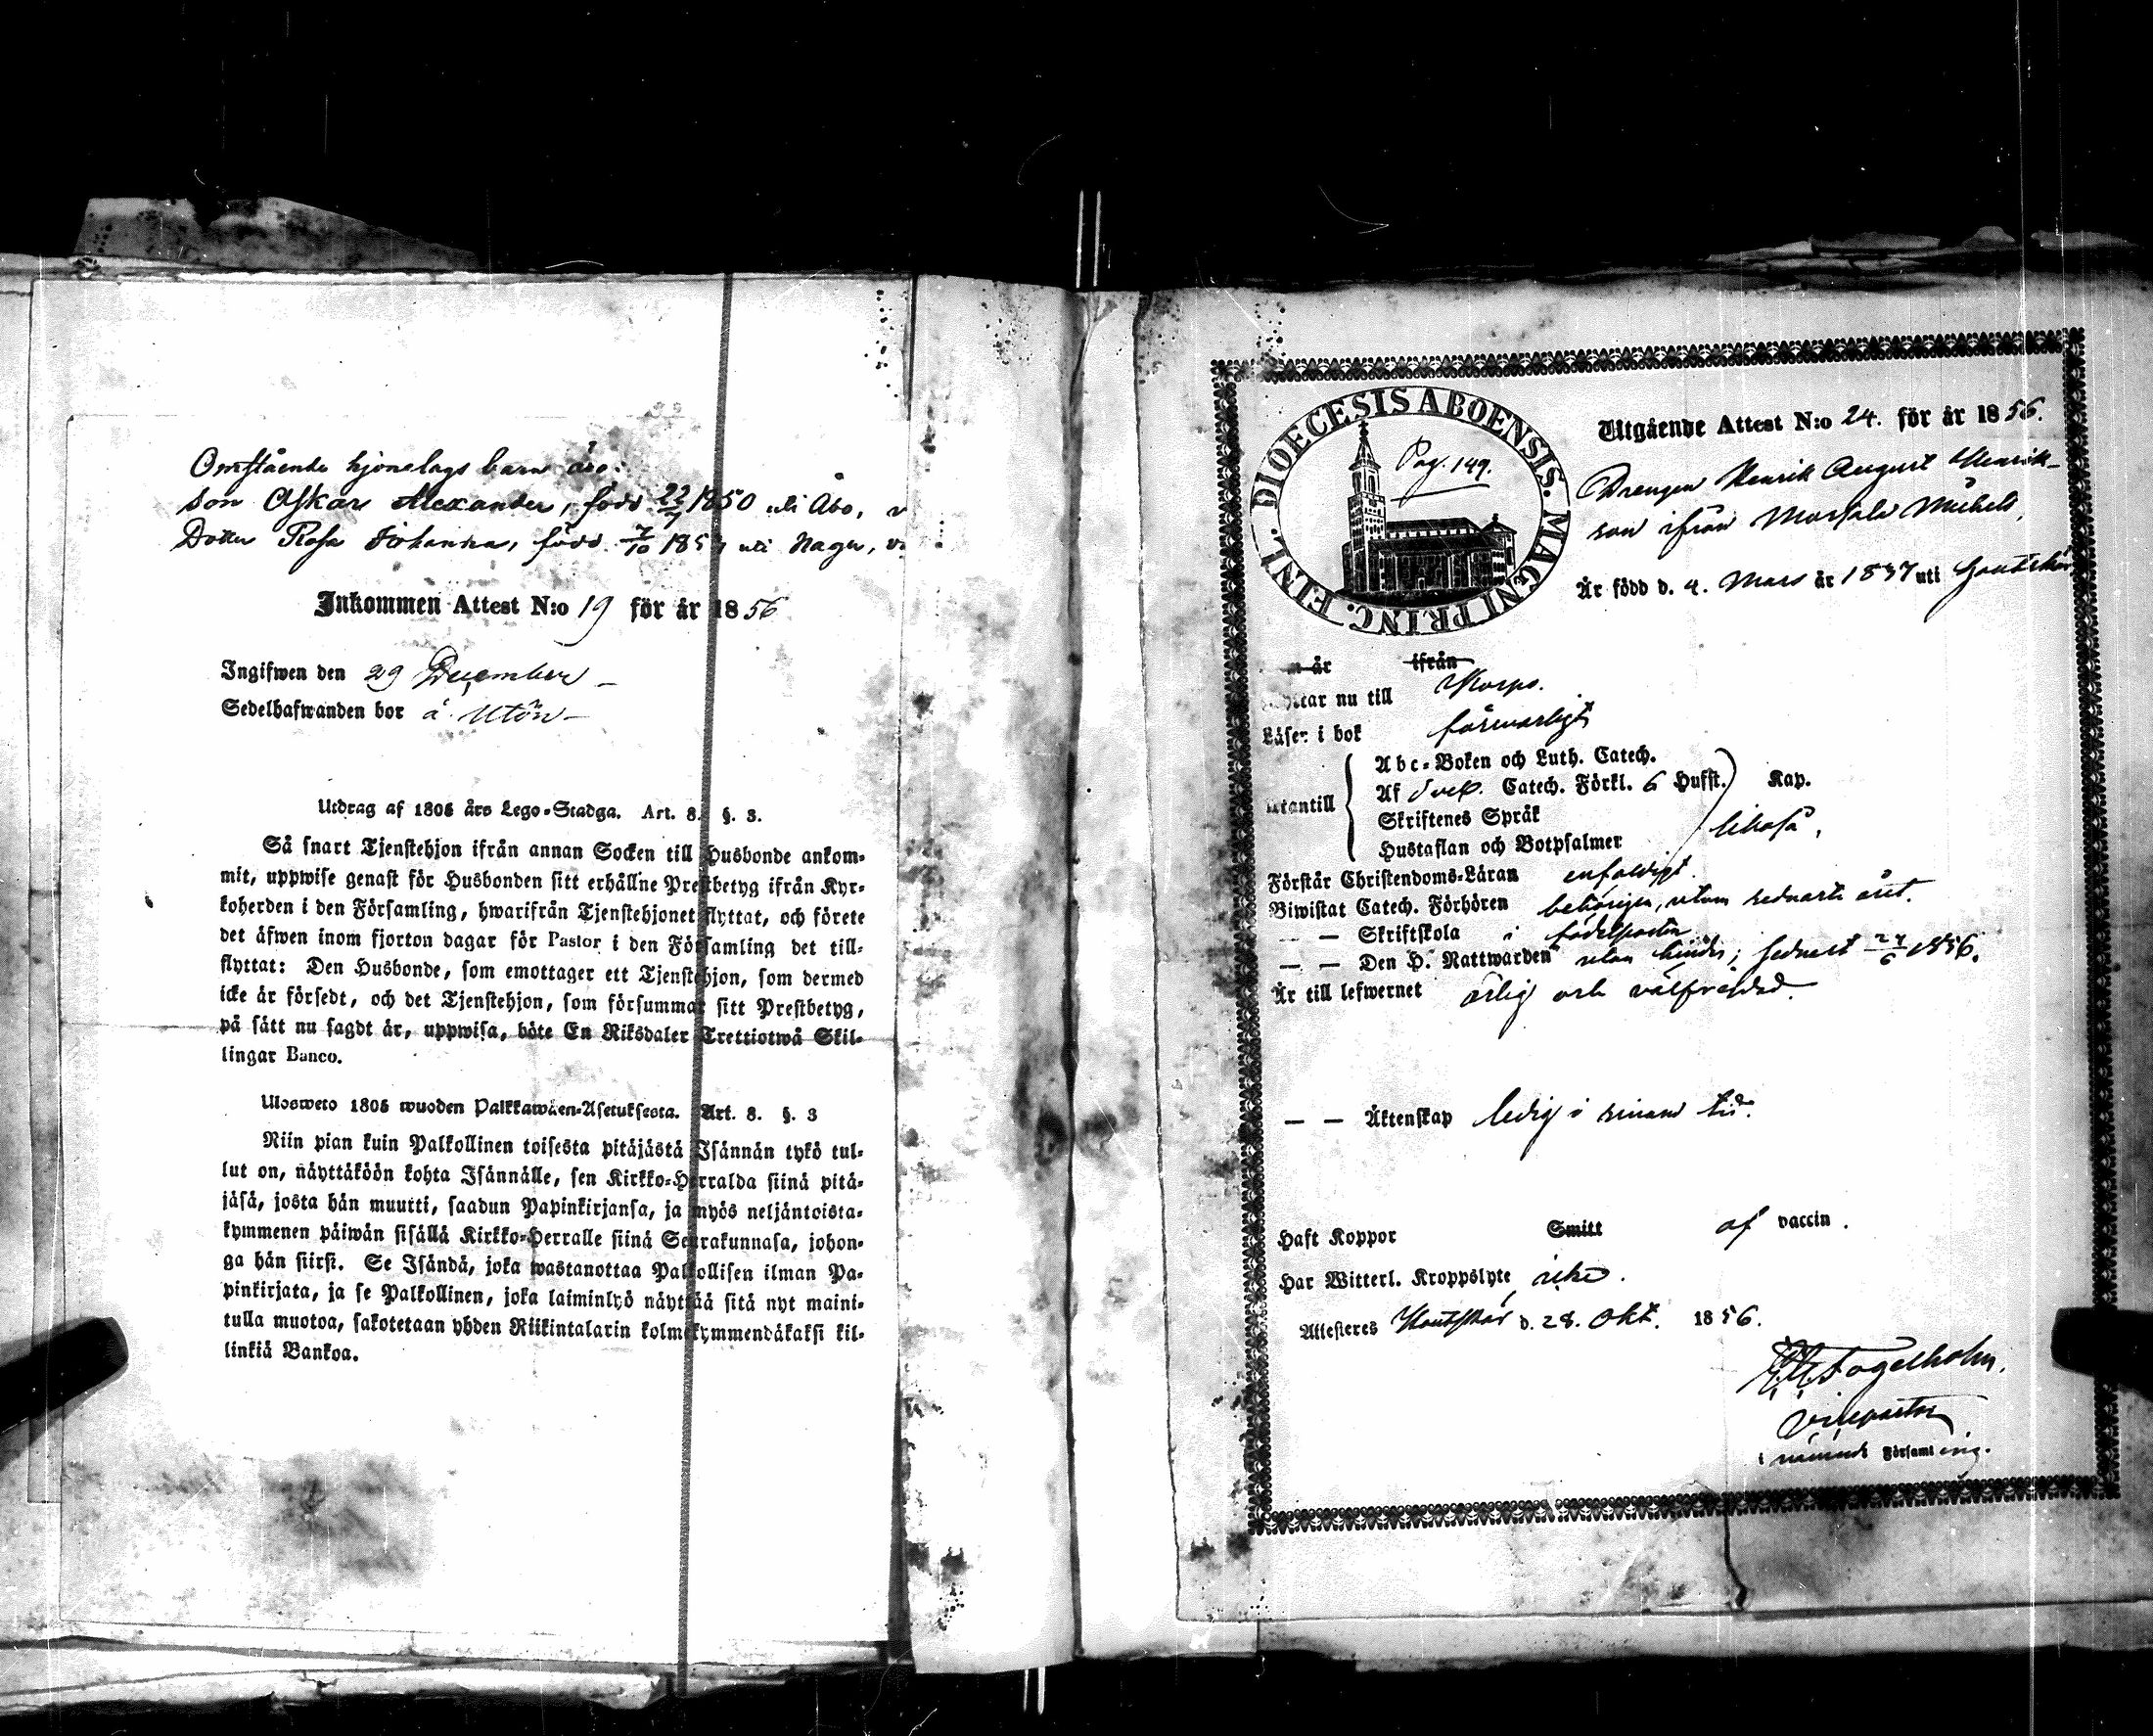 Omstående hjonelags barn äro:
Son Oskar Alexander, född 22/7 1850 uti Åbo,
Dotter Rosa Johanna, född 7/10 185 uti Nagu,
Inkommen Attest N:o 19 för år 1856
Ingifwen den 29 December
Sedelhafwanden bor å Utön
Utdrag af 1805 års Lego-Stadga. Art. 8. §. 3.
Så snart Tjenstehjon ifrån annan Socken till Husbonde ankom-
mit, uppwise genast för Husbonden sitt erhållne Prestbetyg ifrån Kyr-
koherden i den Församling, hwarifrån Tjenstehjonet flyttat, och förete
det äfwen inom fjorton dagar för Pastor i den Församling det till-
flyttat: Den Husbonde, som emottager ett Tjenstehjon, som dermed
icke är försedt, och det Tjenstehjon, som försummar sitt Prestbetyg,
på sätt nu sagdt är, uppwisa, böte En Riksdaler Trettiotwå Skil-
lingar Banco.
Ulosweto 1805 wuoden Palkkawäen-Asetuksesta. Art. 8. §. 3
Niin pian kuin Palkollinen toisesta pitäjästä Isännän tykö tul-
lut on, näyttäköön kohta Isännälle, sen Kirkko-Herralda siinä pitä-
jäsä, josta hän muutti, saadun Papinkirjansa, ja myös neljäntoista-
kymmenen päiwän sisällä Kirkko-Herralle siinä Seurakunnasa, johon-
ga hän siirsi. Se Isändä, joka wastanottaa Palkollisen ilman Pa-
pinkirjata, ja se Palkollinen, joka laiminlyö näyttää sitä nyt maini-
tulla muotoa, sakotetaan yhden Riikintalarin kolmekymmendäkaksi kil-
linkiä Bankoa.
DIOECESIS ABOENSIS. MAGNI PRINC. FINL.
Pag. 149.
Utgående Attest N:o 24. för år 1856.
Drengen Henrik August Henrik-
son ifrån Mossala Michels,
Är född d. 4. Mars år 1837 uti Houtskär
år ifrån
nu till Korpo.
Läser i bok försvarligt
Utantill
Abc-Boken och Luth. Catech.
Af Catech. Förkl. 6 Hufst. Kap.
Skriftenes Språk
Hustaflan och Botpsalmer likaså,
Förstår Christendoms-Läran enfaldigt.
Biwistat Catech. Förhören behörigen, utom sednaste året.
— — Skriftskola i
— — Den H. Nattwarden utan hinder; sednast 24/6 1856.
Är till lefwernet ärlig och välfrejdad.
— — Äktenskap ledig i tid.
Haft Koppor Smitt af vaccin.
Har Witterl. Kroppslyte icke.
Attesteres Houtskär d. 28. Okt. 1856.
Fogelholm.
Vicepastor
i nämnde Församling.